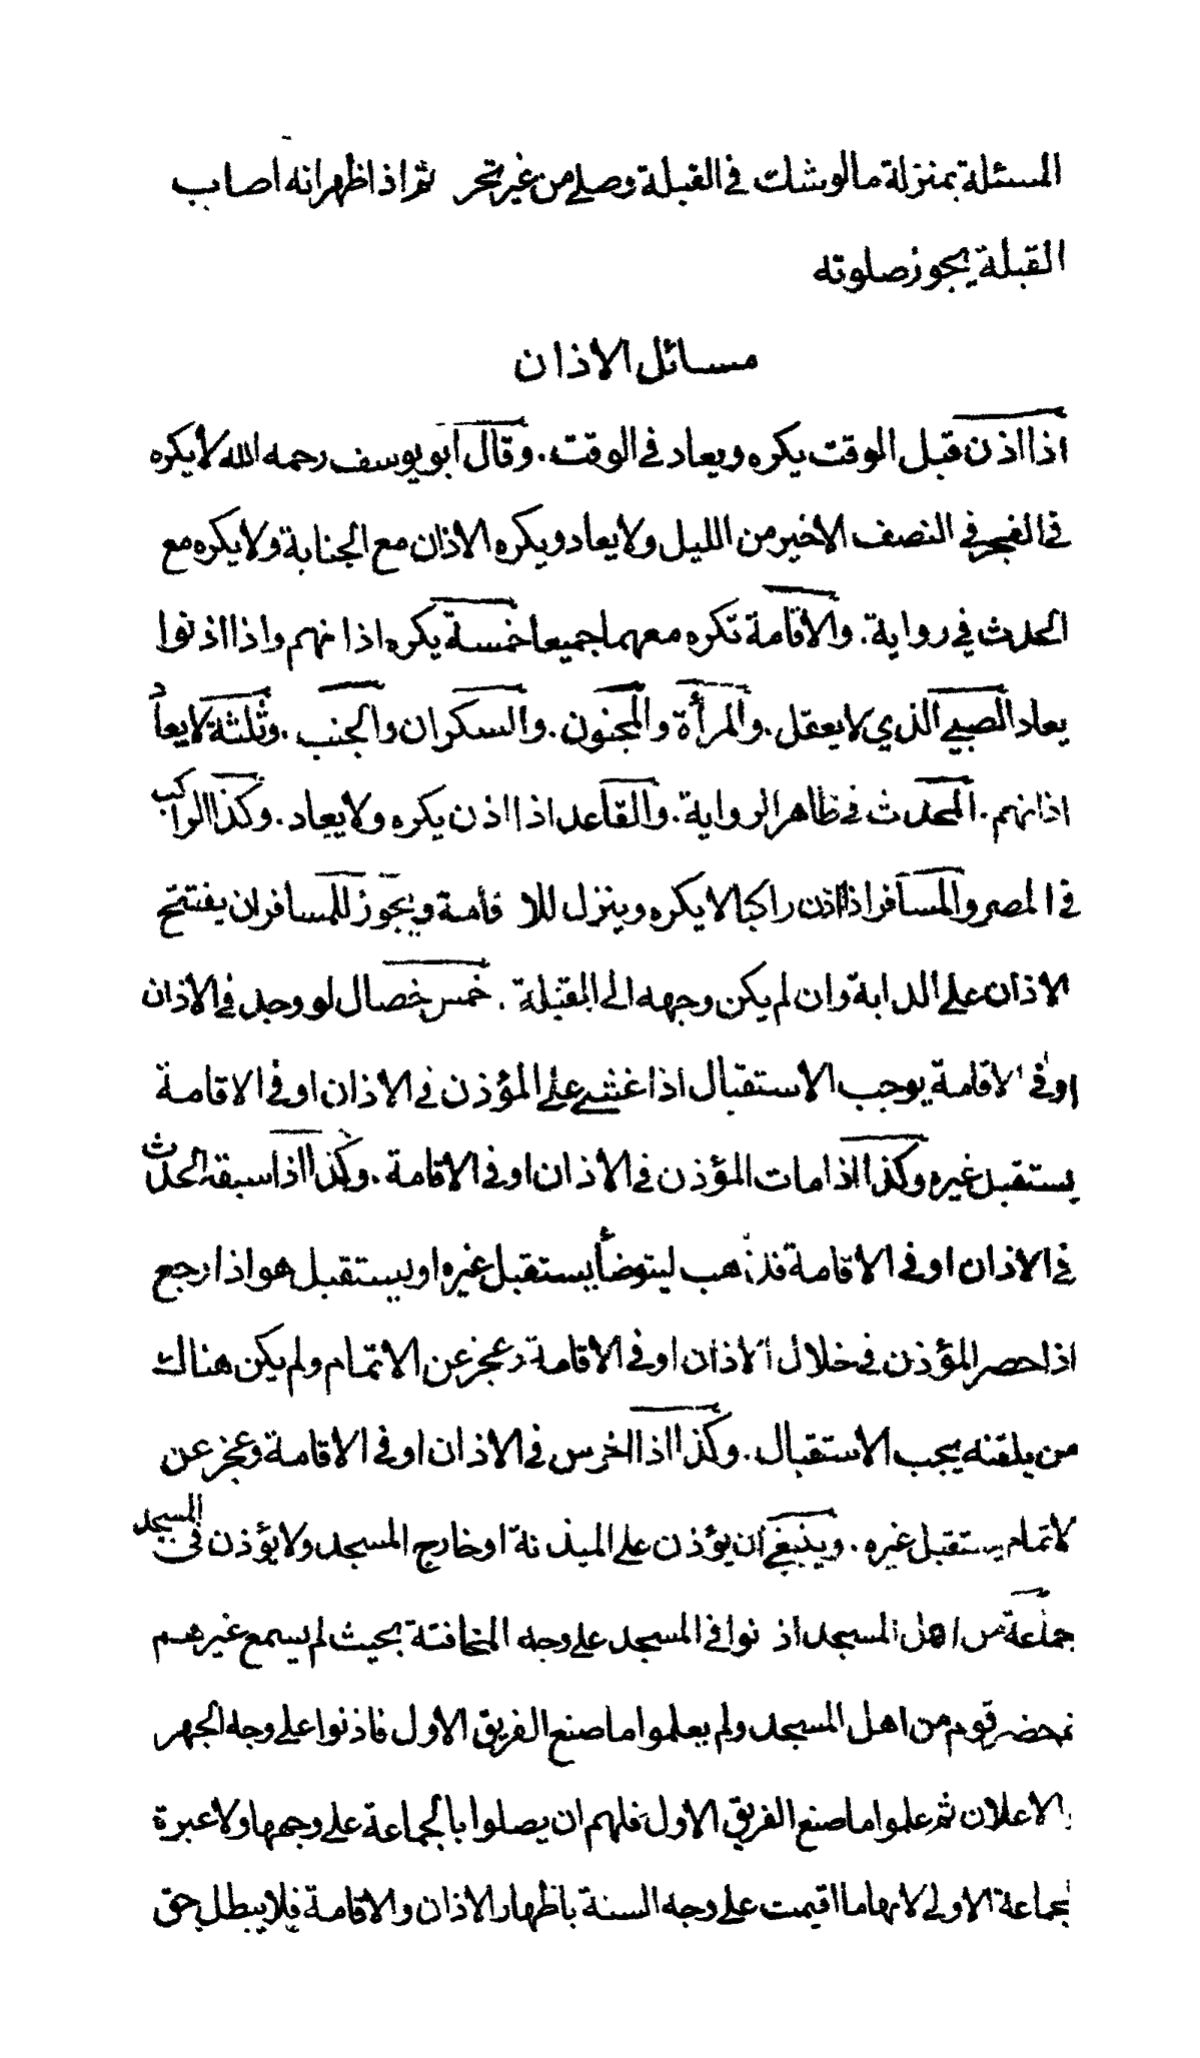 المسئلة بمنزلة مالوشك فى القبلة وصلى من غير تحر ثم اذا ظهر انه اصاب
القبلة يجوز صلوته
مسائل الاذان
اذا اذن قبل الوقت يكره ويعاد فى الوقت. وقال ابو يوسف رحمه الله لا يكره
فى الفجر فى النصف الاخير من الليل ولا يعاد ويكره الاذان مع الجنابة ولا يكره مع
الحدث فى رواية. والاقامة تكره معهما جميعا خمسة يكره اذا نهم واذا اذنوا
يعاد الصبي الذي لا يعقل. والمرأة والمجنون. والسكران والجنب. وثلثة لا يعاد
اذانهم. المحدث فى ظاهر الرواية. والقاعد اذا اذن يكره ولا يعاد. وكذا الراكب
فى المصر والمسافر اذا اذن راكبا لا يكره وينزل للا قامة ويجوز للمسافر ان يفتتح
الاذان على الدابة وان لم يكن وجهه الى القبلة. خمس خصال لو وجد فى الاذان
اوفى الاقامة يوجب الاستقبال اذا غشى على المؤذن فى الاذان اوفى الاقامة
يستقبل غيره وكذا اذا مات المؤذن فى الاذان اوفى الاقامة. وكذا اذا سبقه الحدث
فى الاذان اوفى الاقامة فذهب ليتوضأ يستقبل غيره او يستقبل هو اذا رجع
اذا حصر المؤذن فى خلال الاذان اوفى الاقامة وعجز عن الاتمام ولم يكن هناك
من يلقنه يجب الاستقبال. وكذا اذا اخرس فى الاذان اوفى الاقامة وعجز عن
لاتمام يستقبل غيره. وينبغي ان يؤذن على الميذنة او خارج المسجد ولا يؤذن فى المسجد
جماعة من اهل المسجد اذ نوا فى المسجد على وجه المخافتة بحيث لم يسمع غيرهم
ثم حضر قوم من اهل المسجد ولم يعلموا ما صنع الفريق الاول فاذنوا على وجه الجهر
والاعلان ثم علموا ما صنع الفريق الاول فلهم ان يصلوا بالجماعة على وجهها ولا عبرة
لجماعة الاولى لانها ما اقيمت على وجه السنة باظهار الاذان والاقامة فلا يبطل حق